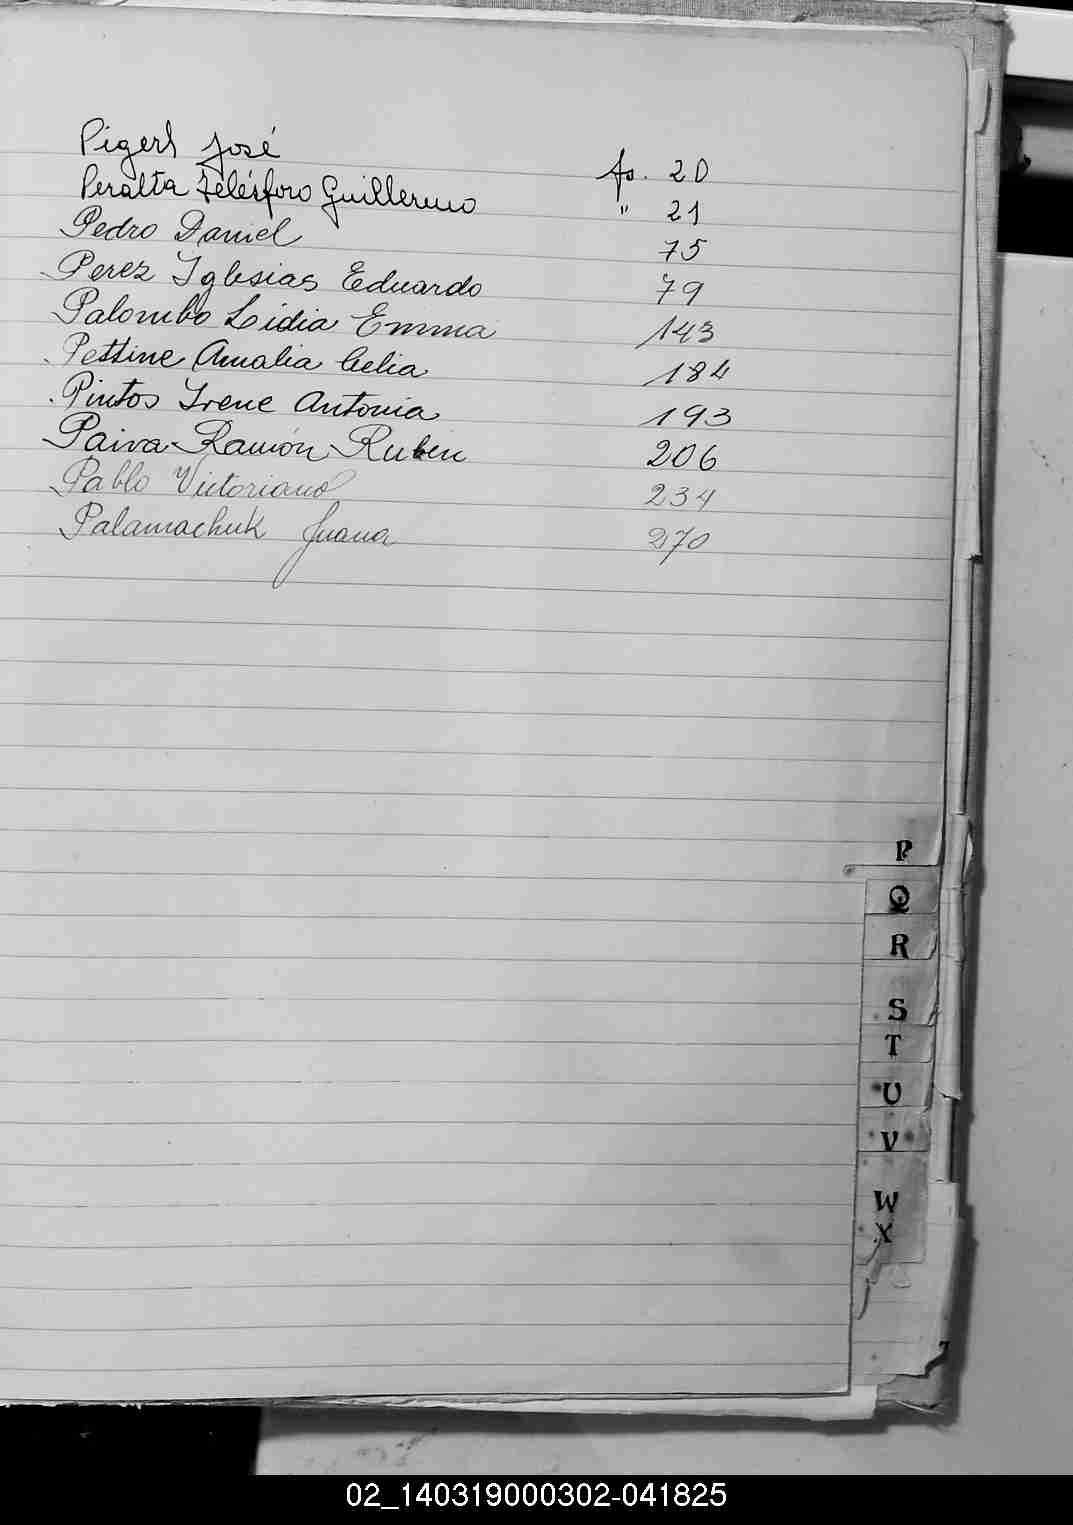 Pigerl José fs. 20
Peralta Telésforo Guillermo " 21
Pedro Daniel 75
Perez Iglesias Eduardo 79
Palombo Lidia Emma 143
Pettine Amalia Celia 184
Pintos Irene Antonia 193
Paiva Ramón Rubén 206
Pablo Victoriano 234
Palamachuk Juana 270
P
Q
R
S
T
U
V
W
X
02_140319000302-041825